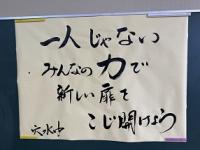 一人じゃない
みんなの力で
新しい扉を
こじ開けよう
穴水中